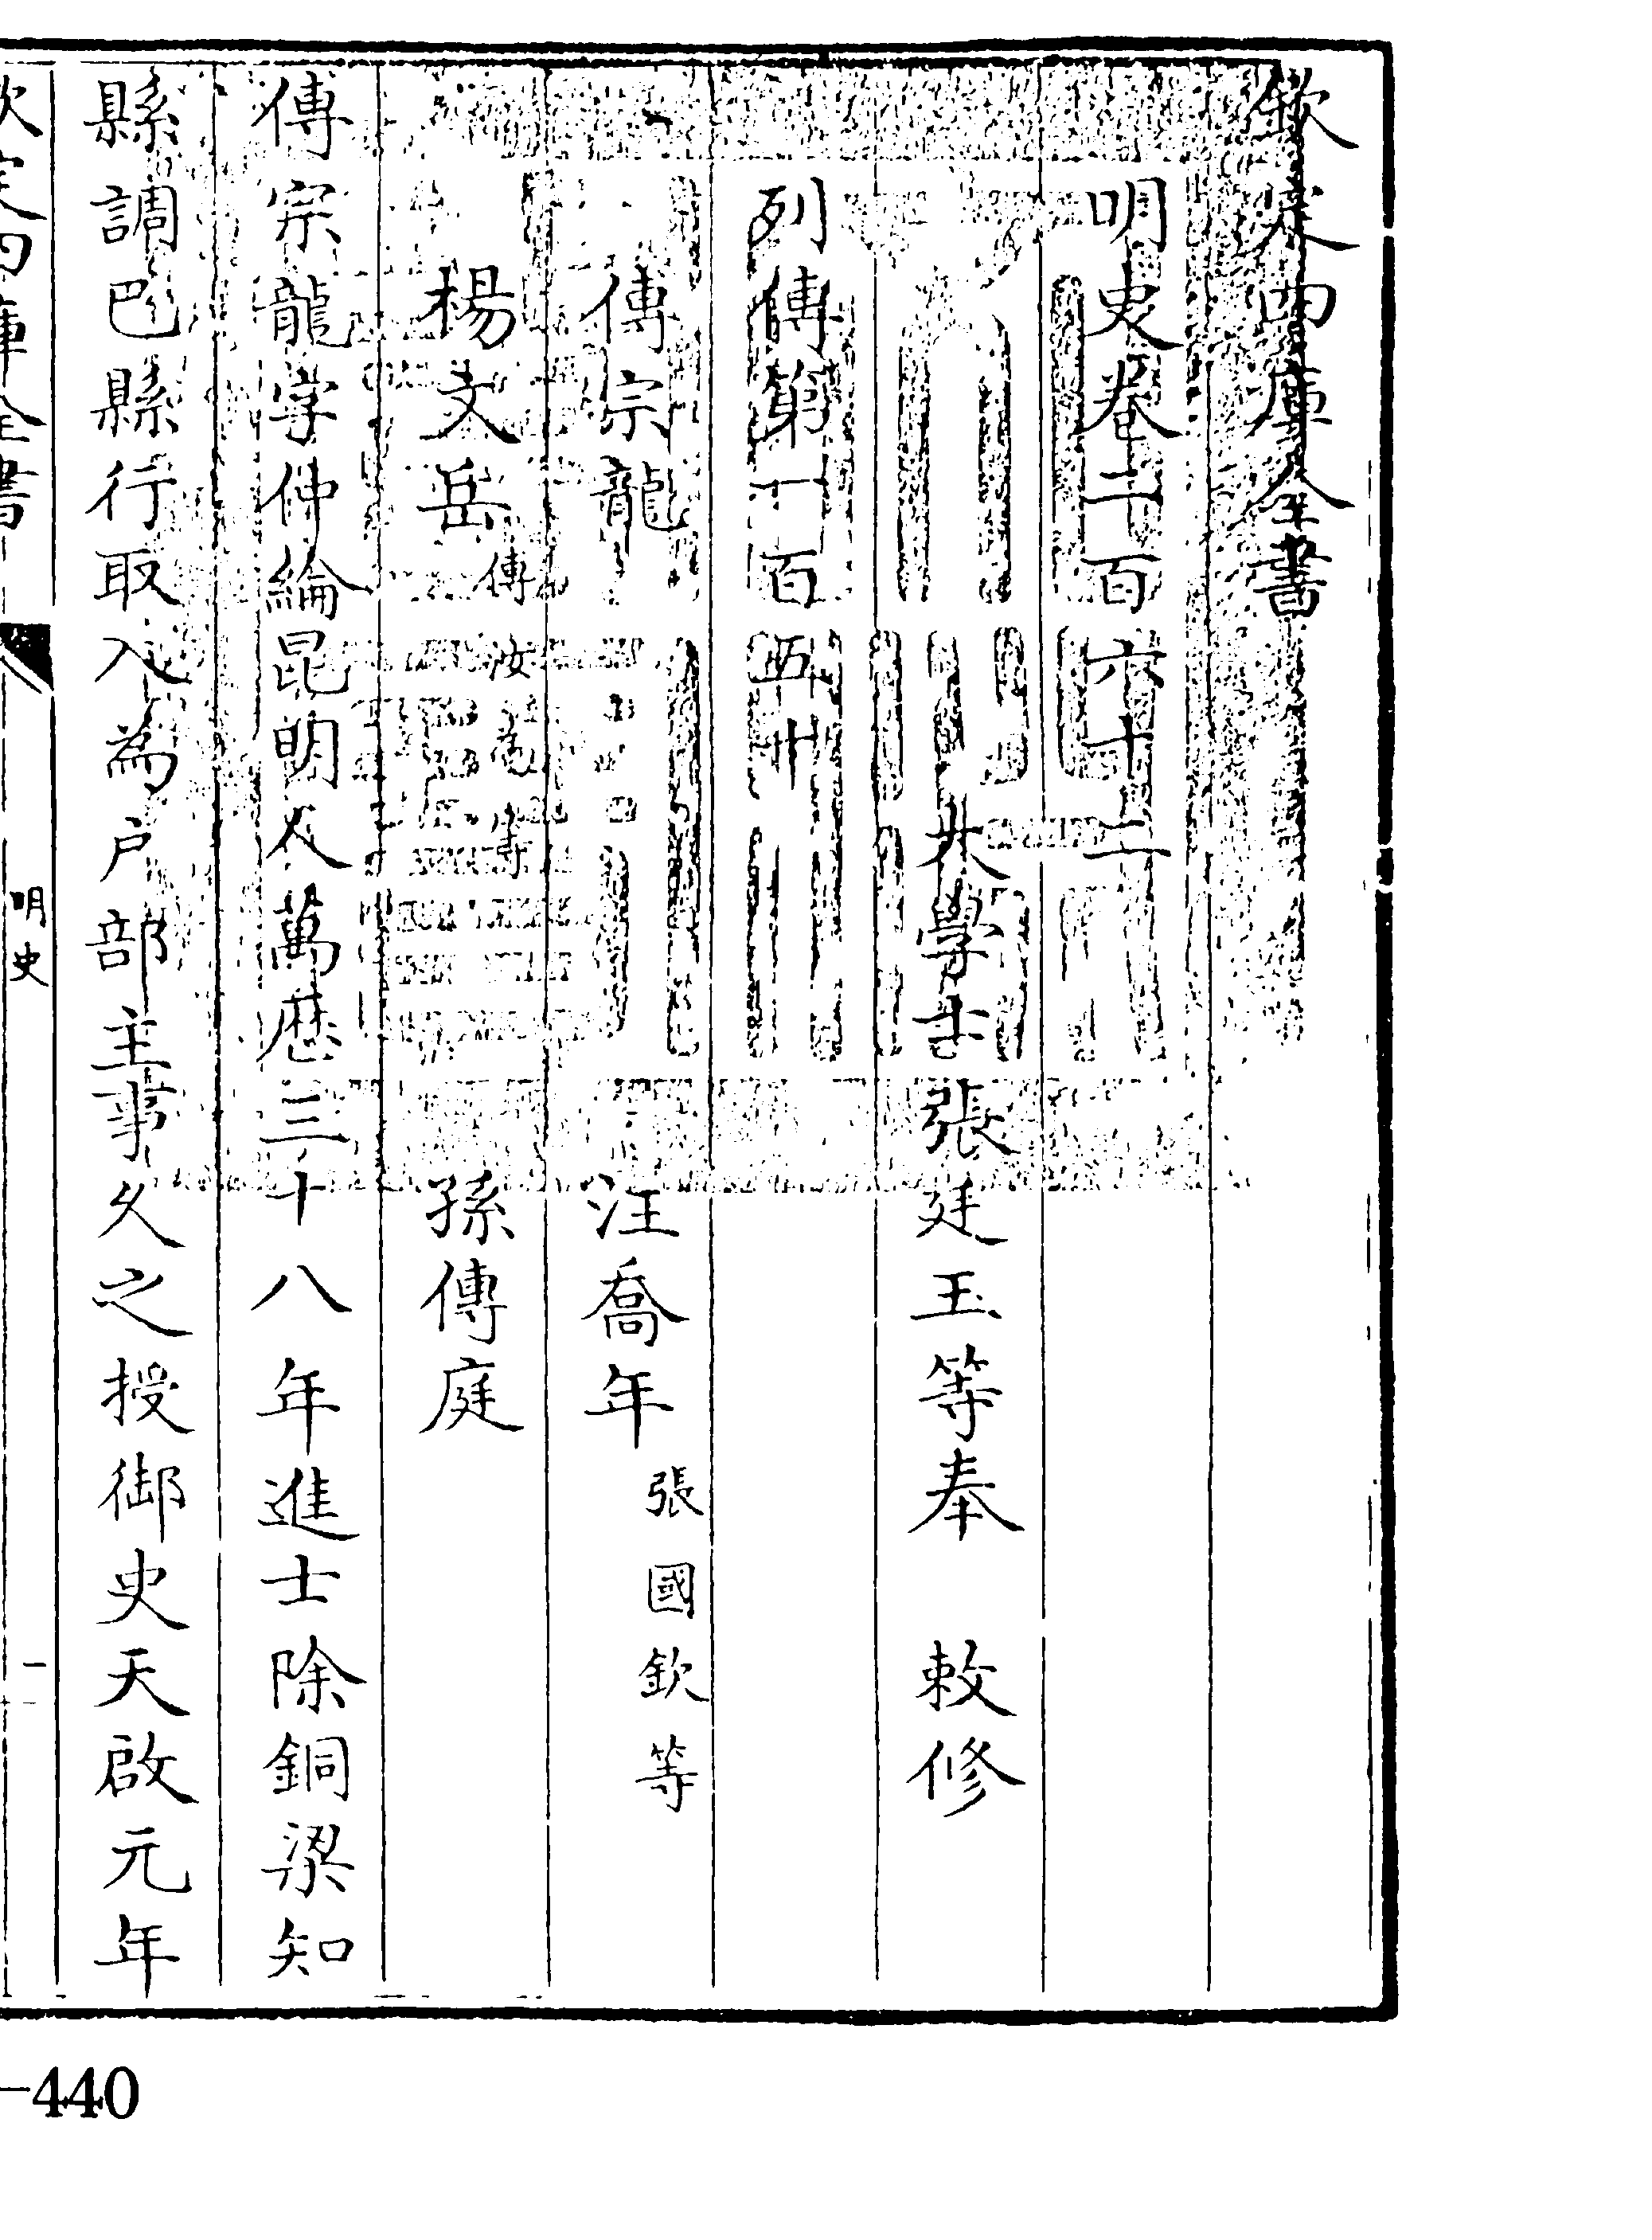 欽定四庫全書
明史卷二百六十二
大學士張廷玉等奉　敕修
列傳第一百五十
傅宗龍　汪喬年 張國欽等
楊文岳 傅汝為等　孫傳庭
傅宗龍字仲綸昆明人萬厯三十八年進士除銅梁知
縣調巴縣行取入為户部主事久之授御史天啟元年
欽定四庫全書
明史
一
—440